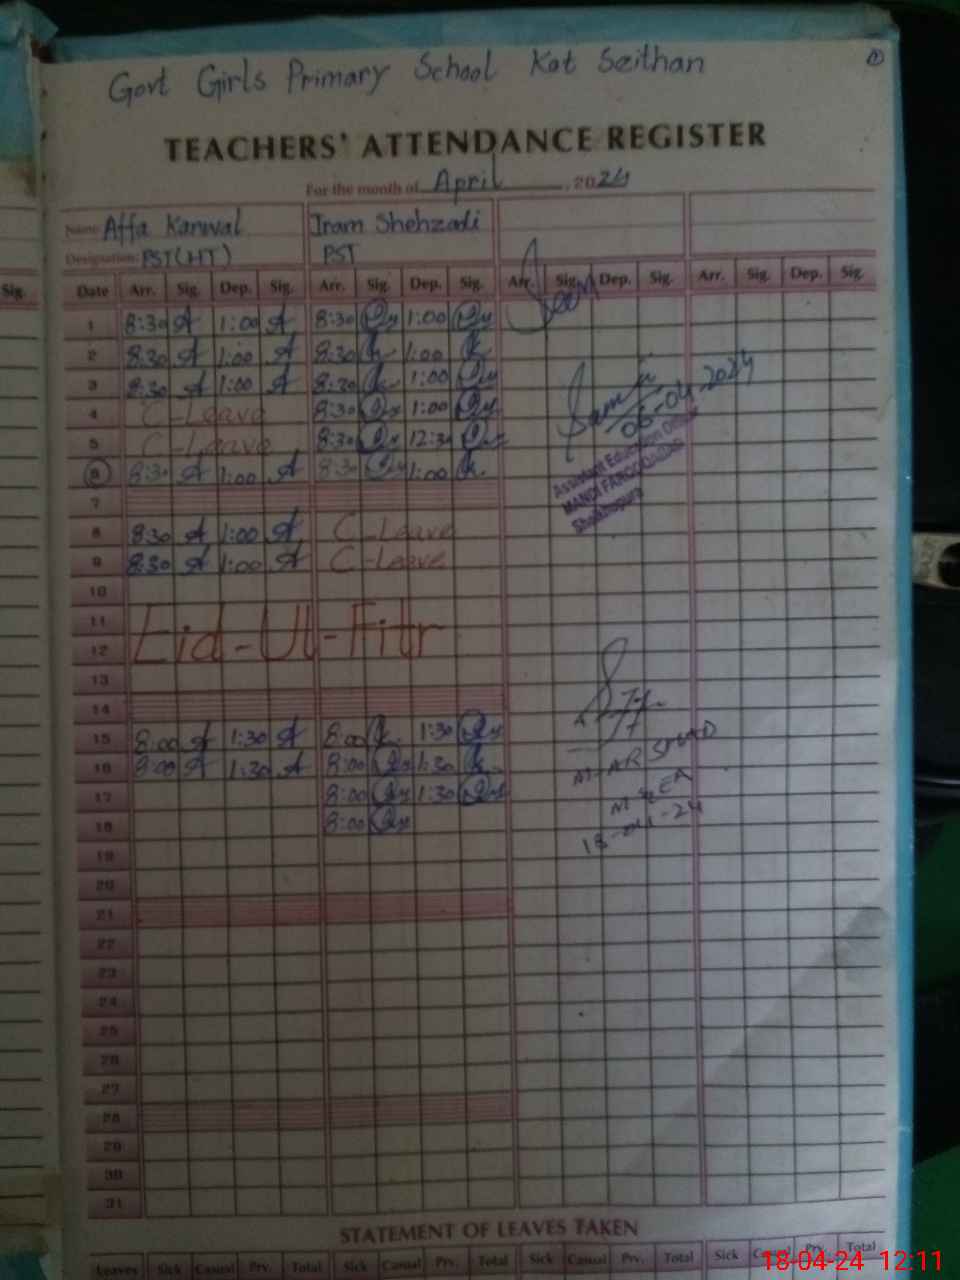 Govt Girls Primary School Kot Seithan
TEACHERS' ATTENDANCE REGISTER
For the month of April, 2024
Name: Affa Kanwal Iram Shehzadi
Designation: PST(HT) PST
Sig. Date Arr. Sig. Dep. Sig. Arr. Sig. Dep. Sig. Arr. Sig. Dep. Sig. Arr. Sig. Dep. Sig.
Seen
1 8:30 A 1:00 A 8:30 1:00
2 8:30 A 1:00 A 8:30 1:00
3 8:30 A 1:00 A 8:30 1:00
4 C-Leave 8:30 1:00
06-04-2024
5 C-Leave 8:30 12:30
Assistant Education Officer
6 8:30 A 1:00 A 8:30 1:00
MANDI FAROOQABAD
Sheikhupura
7
8 8:30 A 1:00 A C-Leave
9 8:30 A 1:00 A C-Leave
10
11
Eid-Ul-Fitr
12
13
14
15 8:00 A 1:30 A 8:00 1:30
M-ARSHAD
16 8:00 A 1:30 A 8:00 1:30
MEA
17 8:00 1:30
18-04-24
18 8:00
19
20
21
22
23
24
25
26
27
28
29
30
31
STATEMENT OF LEAVES TAKEN
Leaves Sick Casual Prv. Total Sick Casual Prv. Total Sick Casual Prv. Total Sick Casual Prv. Total
18-04-24 12:11